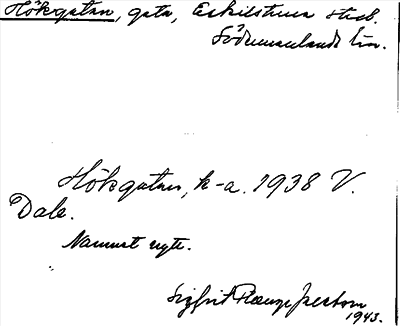 Hökgatan, gata, Eskilstuna stad.
Södermanlands län.
Hökgatan, k-a. 1938 V.
Dale.
Namnet nytt.
Sigfrid
1943.